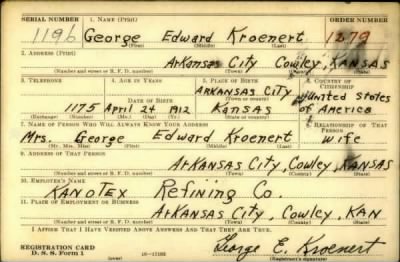 SERIAL NUMBER 1. NAME (Print) ORDER NUMBER
1196 George Edward Kroenert 1279
(First) (Middle) (Last)
2. ADDRESS (Print)
Arkansas City Cowley, KANSAS
(Number and street or R. F. D. number) (Town) (County) (State)
3. TELEPHONE 4. AGE IN YEARS 5. PLACE OF BIRTH 6. COUNTRY OF CITIZENSHIP
ARKANSAS CITY
(Town or county)
DATE OF BIRTH United States
1175 April 24 1912 Kansas of America
(Mo.) (Day) (Yr.) (State or country)
7. NAME OF PERSON WHO WILL ALWAYS KNOW YOUR ADDRESS 8. RELATIONSHIP OF THAT PERSON
Mrs. George Edward Kroenert wife
(Mr., Mrs., Miss) (First) (Middle) (Last)
9. ADDRESS OF THAT PERSON
Arkansas City, Cowley, Kansas
(Number and street or R. F. D. number) (Town) (County) (State)
10. EMPLOYER'S NAME
KANOTEX Refining Co.
11. PLACE OF EMPLOYMENT OR BUSINESS
Arkansas City, Cowley, KAN
(Number and street or R. F. D. number) (Town) (County) (State)
I AFFIRM THAT I HAVE VERIFIED ABOVE ANSWERS AND THAT THEY ARE TRUE.
REGISTRATION CARD
D. S. S. Form 1 George E. Kroenert
(Registrant's signature)